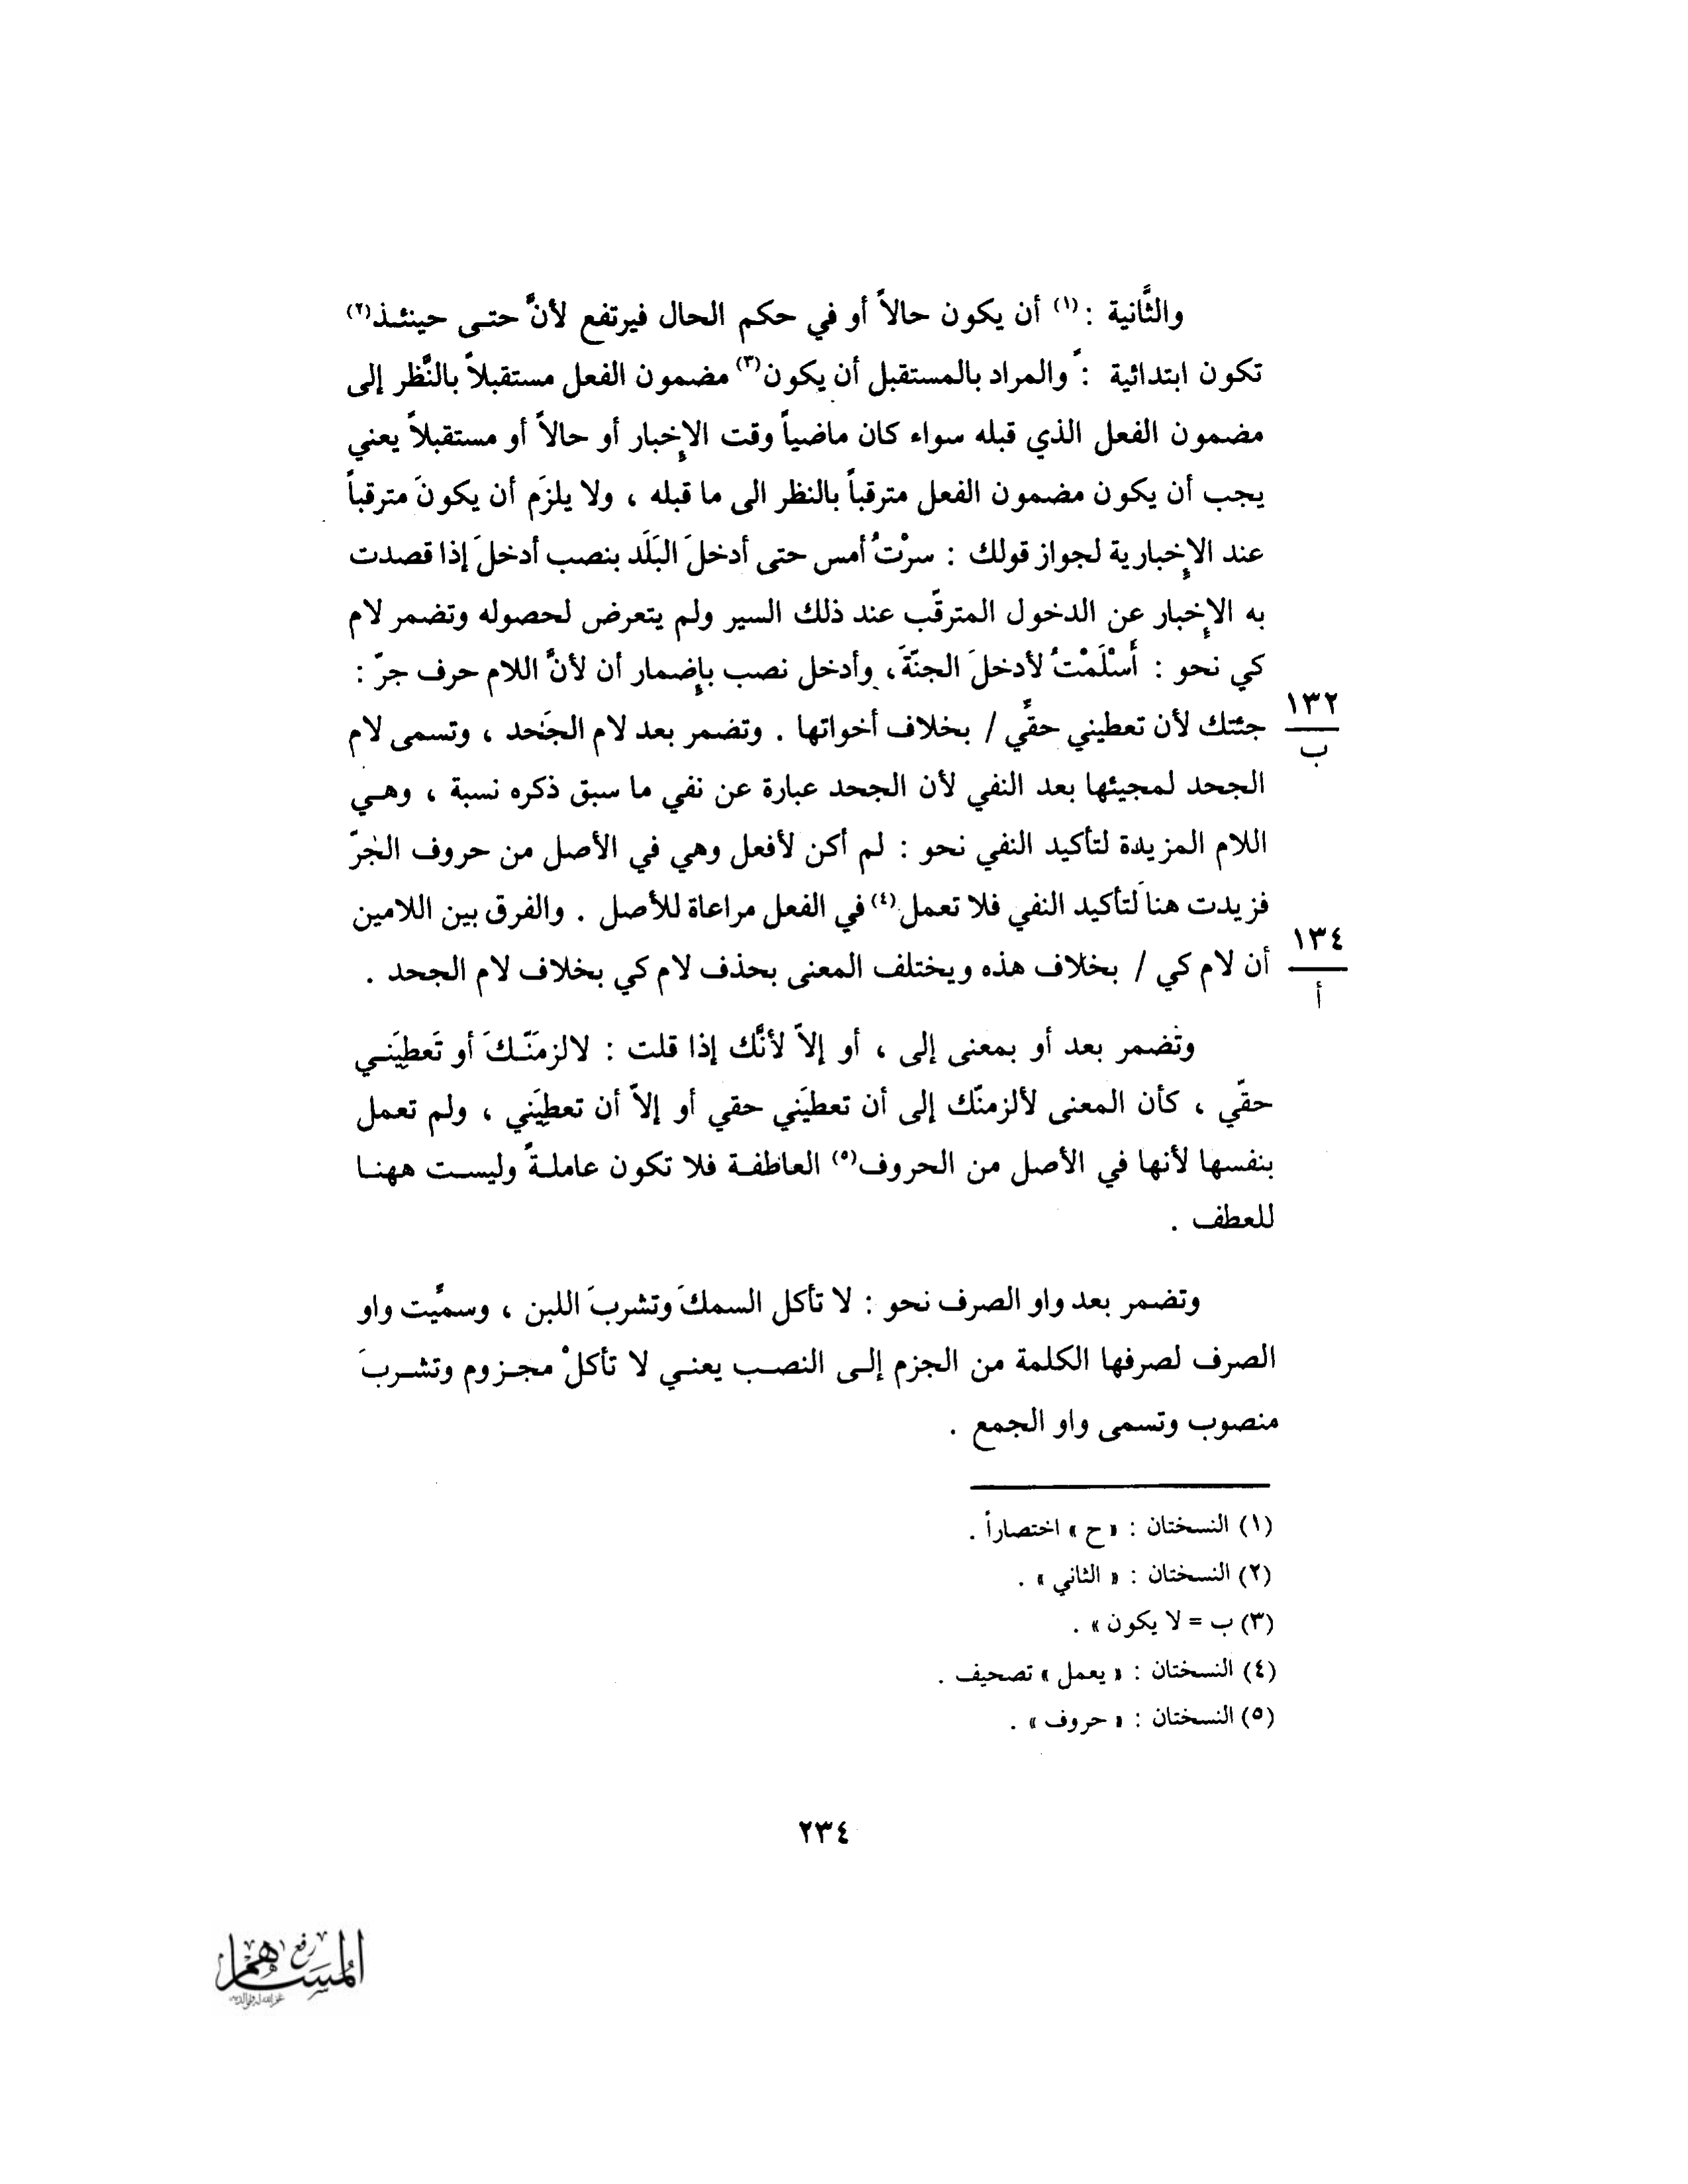 والثَّانية : (١) أن يكون حالاً أو في حكم الحال فيرتفع لأنَّ حتى حينئذ(٢)
تكون ابتدائية : والمراد بالمستقبل أن يكون(٣) مضمون الفعل مستقبلاً بالنَّظر إلى
مضمون الفعل الذي قبله سواء كان ماضياً وقت الإخبار أو حالاً أو مستقبلاً يعني
يجب أن يكون مضمون الفعل مترقباً بالنظر الى ما قبله ، ولا يلزَم أن يكونَ مترقباً
عند الإخبارية لجواز قولك : سرْتُ أمس حتى أدخلَ البَلَد بنصب أدخلَ إذا قصدت
به الإخبار عن الدخول المترقّب عند ذلك السير ولم يتعرض لحصوله وتضمر لام
كي نحو : أَسْلَمْتُ لأدخلَ الجنّةَ ، وأدخل نصب بإضمار أن لأنَّ اللام حرف جرّ :
جئتك لأن تعطيني حقِّي / بخلاف أخواتها . وتضمر بعد لام الجَحد ، وتسمى لام
١٣٢
ب
الجحد لمجيئها بعد النفي لأن الجحد عبارة عن نفي ما سبق ذكره نسبة ، وهي
اللام المزيدة لتأكيد النفي نحو : لم أكن لأفعل وهي في الأصل من حروف الجرّ
فزيدت هنا لتأكيد النفي فلا تعمل(٤) في الفعل مراعاة للأصل . والفرق بين اللامين
أن لام كي / بخلاف هذه ويختلف المعنى بحذف لام كي بخلاف لام الجحد .
١٣٤
أ
وتضمر بعد أو بمعنى إلى ، أو إلاّ لأنَّك إذا قلت : لالزمَنّكَ أو تَعطِيَني
حقّي ، كأن المعنى لألزمنّك إلى أن تعطيَني حقي أو إلاّ أن تعطِيَني ، ولم تعمل
بنفسها لأنها في الأصل من الحروف(٥) العاطفة فلا تكون عاملةً وليست ههنا
للعطف .
وتضمر بعد واو الصرف نحو : لا تأكل السمكَ وتشربَ اللبن ، وسمِّيت واو
الصرف لصرفها الكلمة من الجزم إلى النصب يعني لا تأكلْ مجزوم وتشربَ
منصوب وتسمى واو الجمع .
(١) النسختان : « ح » اختصاراً .
(٢) النسختان : « الثاني » .
(٣) ب = لا يكون » .
(٤) النسختان : « يعمل » تصحيف .
(٥) النسختان : « حروف » .
٢٣٤
رفع
المساهم
غفر الله له ولوالديه